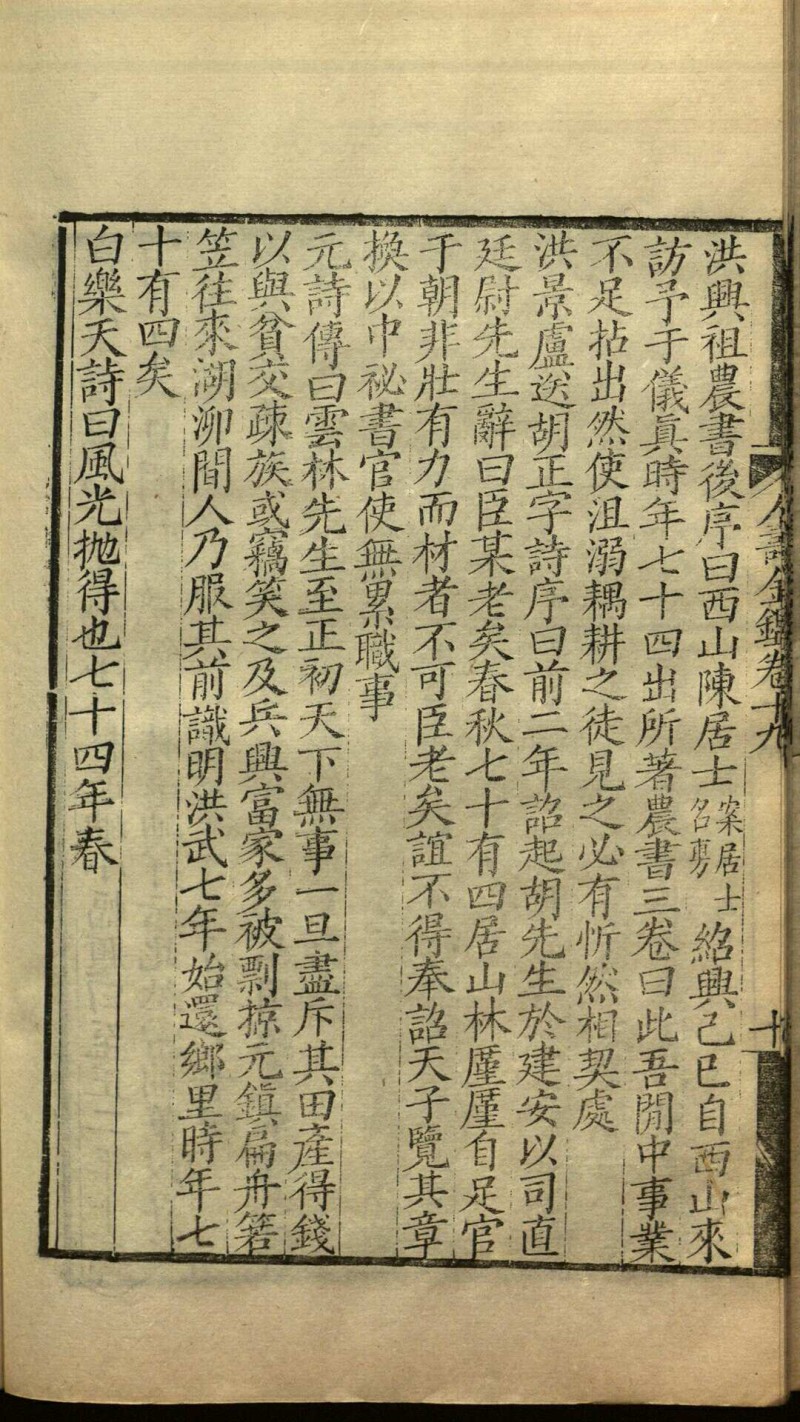 洪興祖農書後序曰西山陳居士案居士名旉紹興己巳自西山來
訪予于儀真時年七十四出所著農書三卷曰此吾閒中事業
不足拈出然使沮溺耦耕之徒見之必有忻然相契處
洪景盧送胡正字詩序曰前二年詔起胡先生於建安以司直
廷尉先生辭曰臣某老矣春秋七十有四居山林廑廑自足官
于朝非壯有力而材者不可臣老矣誼不得奉詔天子覽其章
換以中祕書官使無累職事
元詩傳曰雲林先生至正初天下無事一旦盡斥其田產得錢
以與貧交疎族或竊笑之及兵興富家多被剽掠元鎮扁舟箬
笠往來湖泖間人乃服其前識明洪武七年始還鄉里時年七
十有四矣
白樂天詩曰風光拋得也七十四年春
卷十九
十